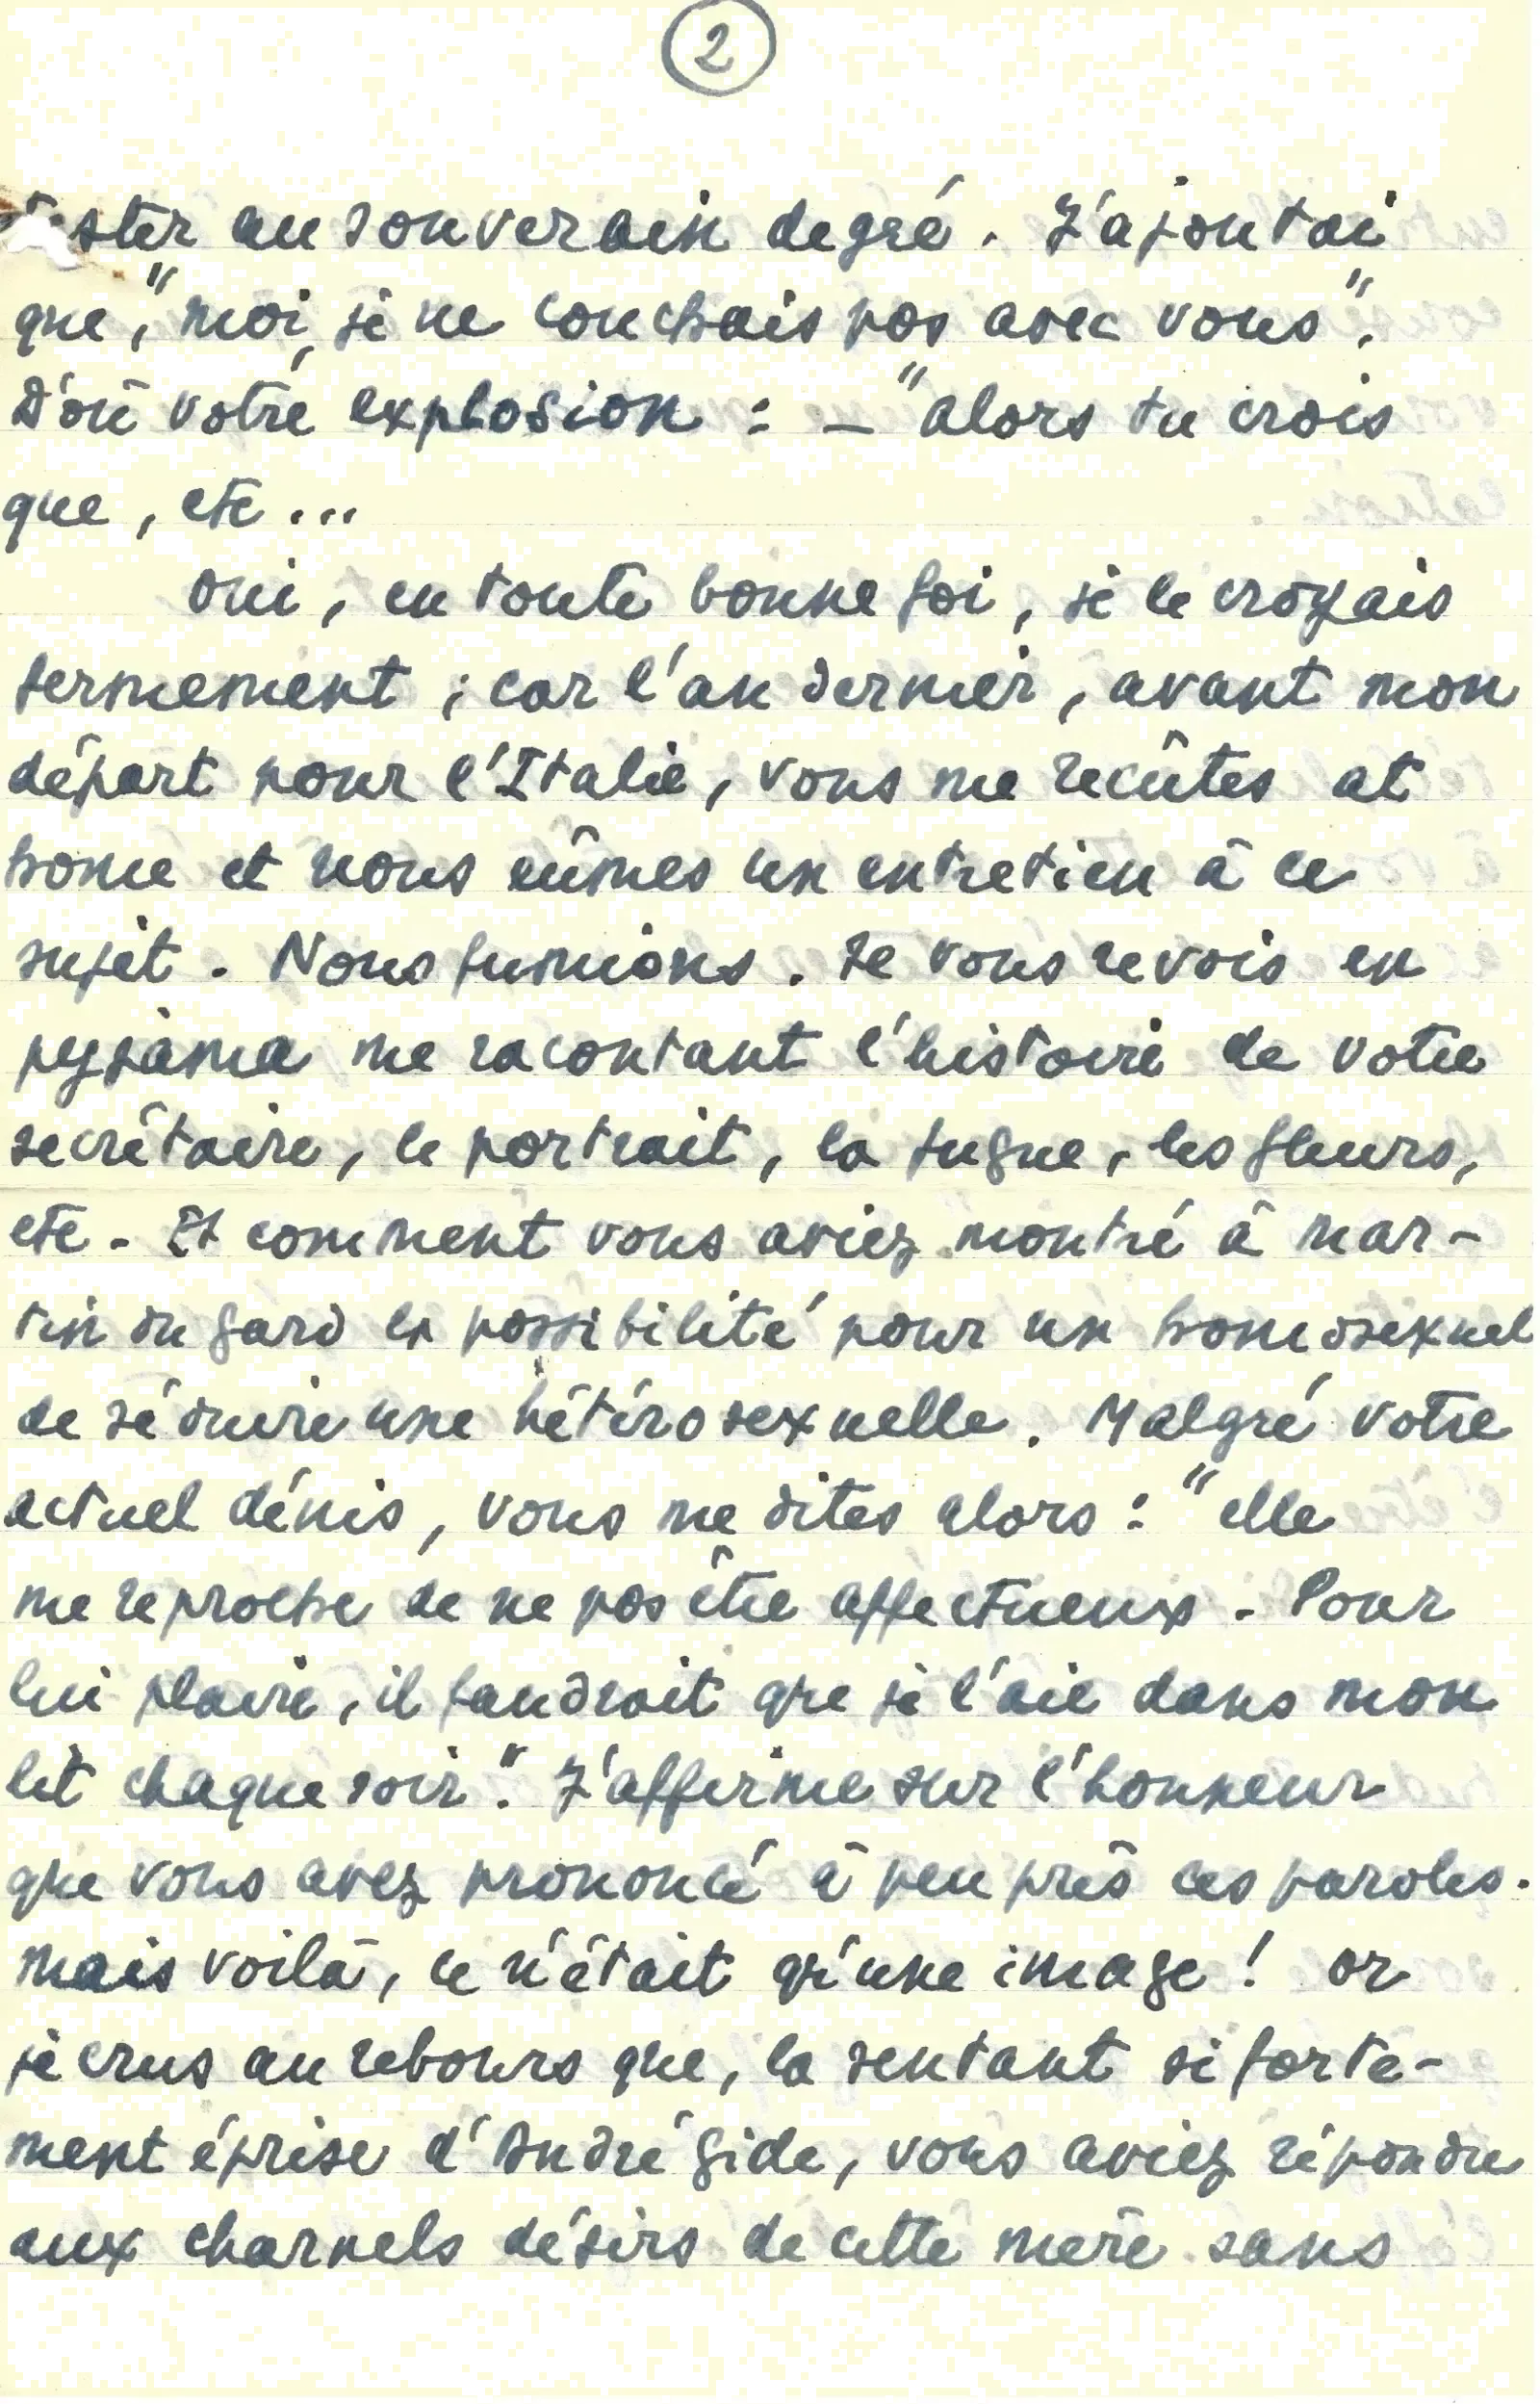 2
ster au souverain degré. J'ajoutai
que, "moi, je ne couchais pas avec vous".
D'où votre explosion : – "alors tu crois
que, etc...
Oui, en toute bonne foi, je le croyais
fermement ; car l'an dernier, avant mon
départ pour l'Italie, vous me reçûtes at
home et nous eûmes un entretien à ce
sujet. Nous fumions. Je vous revois en
pyjama me racontant l'histoire de votre
secrétaire, le portrait, la fugue, les fleurs,
etc. Et comment vous aviez montré à Mar-
tin du Gard la possibilité pour un homosexuel
de séduire une hétérosexuelle. Malgré votre
actuel dénis, vous me dites alors : "elle
me reproche de ne pas être affectueux. Pour
lui plaire, il faudrait que je l'aie dans mon
lit chaque soir". J'affirme sur l'honneur
que vous avez prononcé à peu près ces paroles.
Mais voilà, ce n'était qu'une image ! Or
je crus au rebours que, la sentant si forte-
ment éprise d'André Gide, vous aviez répondu
aux charnels désirs de cette mère sans